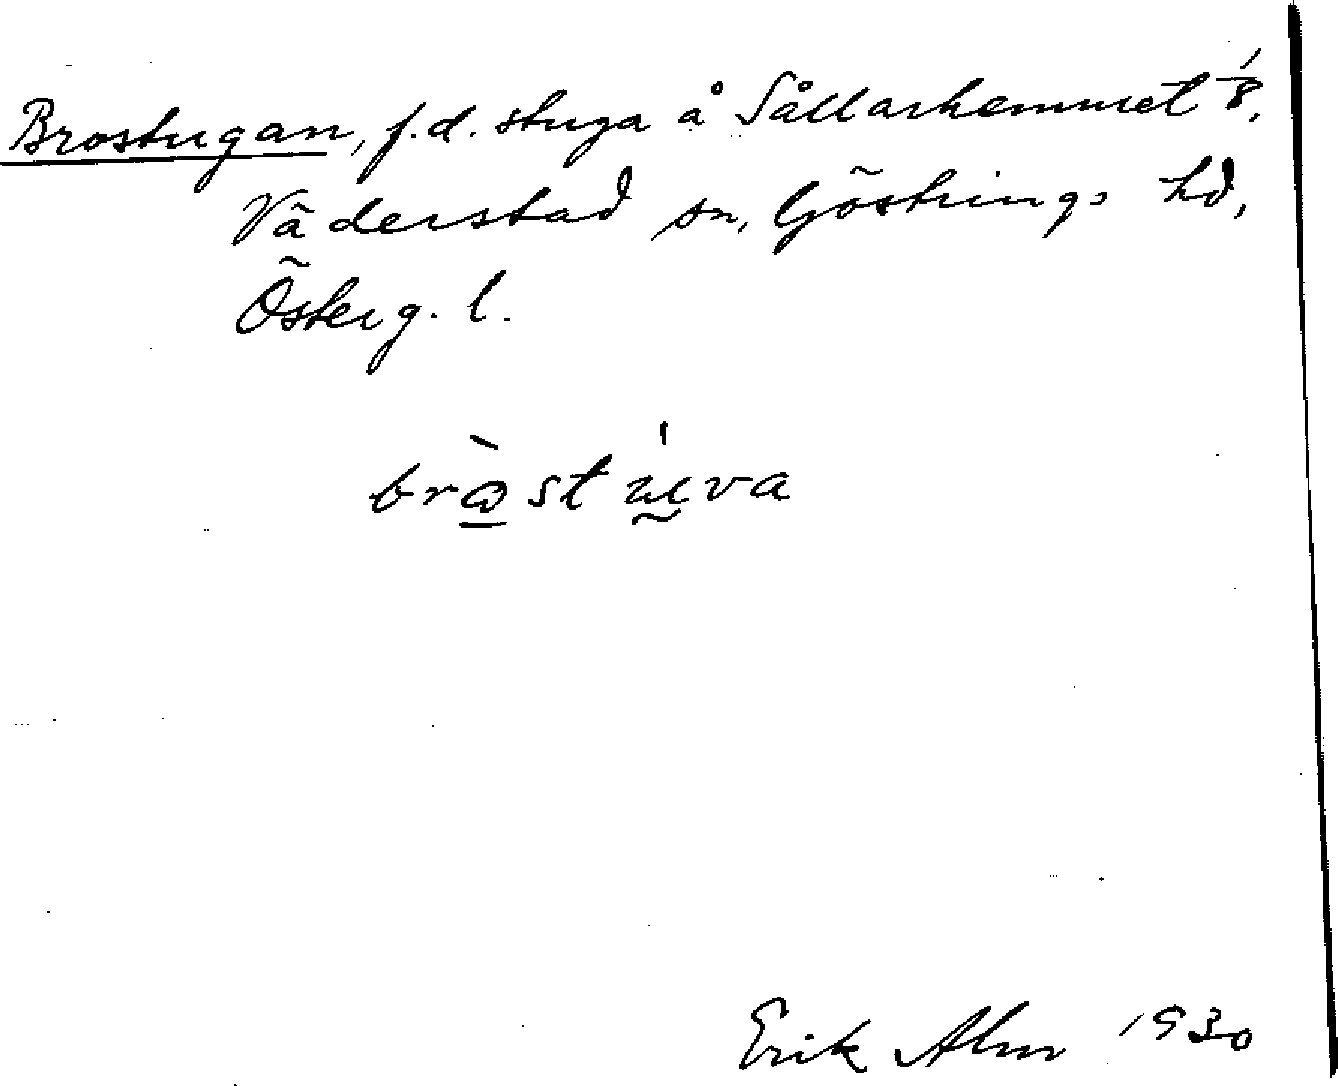 Brostugan, f.d. stuga å Sållarhemmet 1/8,
Väderstad sn, Göstrings hd,
Österg. l.
bròstúva
Erik Alm 1930